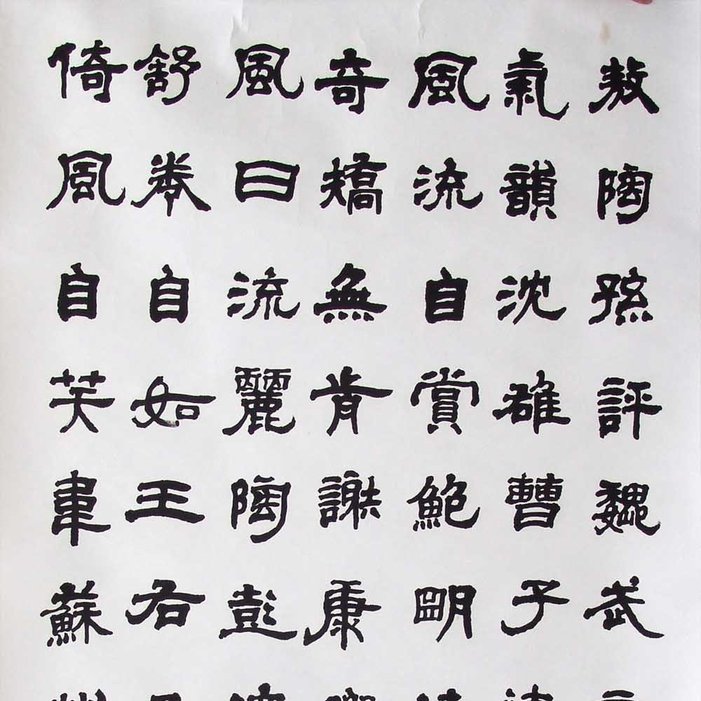 敖陶孫評魏武
氣韻沈雄曹子
風流自賞鮑明
奇矯無前謝康
風日流麗陶彭
舒卷自如王右
倚風自笑韋蘇